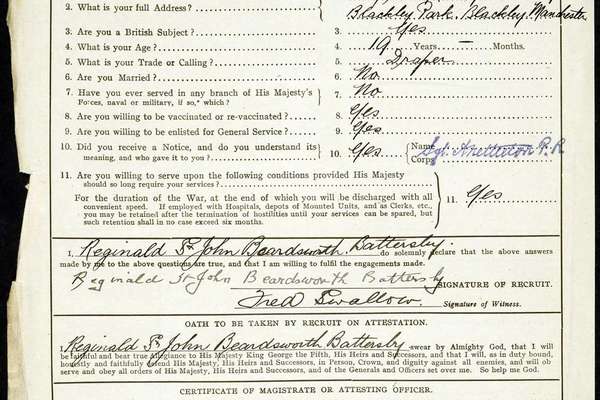 2. What is your full Address? 2.
Blackley Park. Blackley. Manchester
3. Are you a British Subject? 3. Yes
4. What is your Age? 4. 19 Years — Months.
5. What is your Trade or Calling? 5. Draper
6. Are you Married? 6. No
7. Have you ever served in any branch of His Majesty's
Forces, naval or military, if so,* which? 7. No
8. Are you willing to be vaccinated or re-vaccinated? 8. Yes
9. Are you willing to be enlisted for General Service? 9. Yes
10. Did you receive a Notice, and do you understand its
meaning, and who gave it to you? 10. Yes Name Sgt.
Corps
11. Are you willing to serve upon the following conditions provided His Majesty
should so long require your services?
For the duration of the War, at the end of which you will be discharged with all
convenient speed. If employed with Hospitals, depots of Mounted Units, and as Clerks, etc.,
you may be retained after the termination of hostilities until your services can be spared, but
such retention shall in no case exceed six months.
11. Yes
I, Reginald St John Beardsworth Battersby do solemnly declare that the above answers
made by me to the above questions are true, and that I am willing to fulfil the engagements made.
Reginald St John Beardsworth Battersby SIGNATURE OF RECRUIT.
Fred Swallow. Signature of Witness.
OATH TO BE TAKEN BY RECRUIT ON ATTESTATION.
Reginald St John Beardsworth Battersby swear by Almighty God, that I will
be faithful and bear true Allegiance to His Majesty King George the Fifth, His Heirs and Successors, and that I will, as in duty bound,
honestly and faithfully defend His Majesty, His Heirs and Successors, in Person, Crown, and dignity against all enemies, and will ob
serve and obey all orders of His Majesty, His Heirs and Successors, and of the Generals and Officers set over me. So help me God.
CERTIFICATE OF MAGISTRATE OR ATTESTING OFFICER.